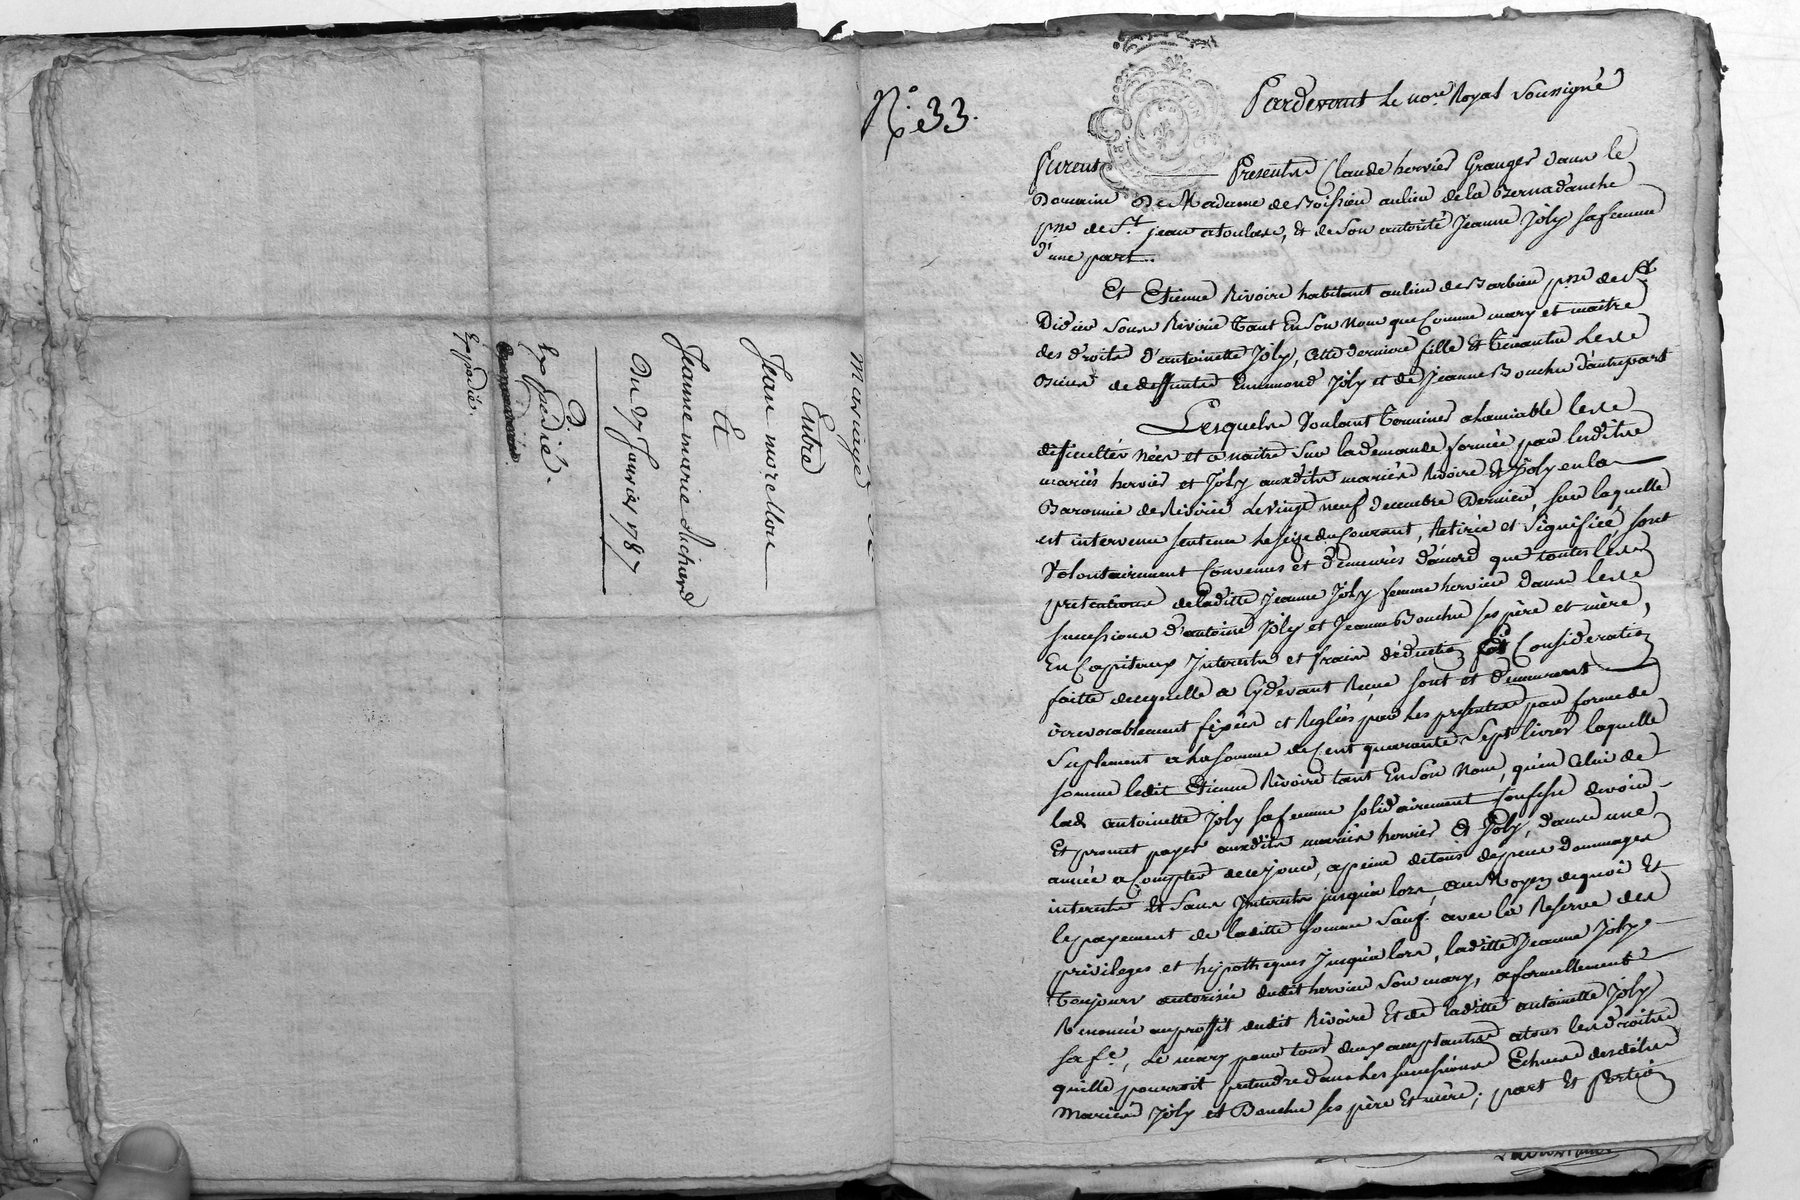 Mariage de
Entre
Jean morellon
Et
Jeanne marie Richard
Du 7 Janvier 1787
Expédié.
Expedié.
N.° 33.
Pardevant Le no.re Royal Soussigné
Furent Presents Claude hervier Granger dans le
Domaine De Madame de Boissieu au lieu de la Bernadanche
psse de St. jean a toulas, et de Son autorité Jeanne Joly sa femme
d'une part.
Et Etienne Rivoire habitant au lieu de Barbieu psse de St
Didier Sous Rivirie tant En Son Nom que Comme mary et maitre
des droits d'antoinette Joly, Cette derniere fille Et tenantte Les
biens de deffunts Enmmond Joly et de Jeanne Bouchu d'autre part
Lesquels Voulant terminer a lamiable les
difficultés Nées et a naitre Sur la demande formée par lesdits
mariés hervier et Joly auxdits mariés Rivoire et Joly en la
Baronnie de Riviríe Le vingt neuf decembre Dernier, sur laquelle
est intervenu sentence le seize du Courant, Retirée et Signifiée sont
Volontairement Convenus et demeurés d'acord que toutes les
pretentions de laditte Jeanne Joly femme hervier dans les
successions d'antoine Joly et Jeanne Bouchu ses père et mère,
En Capitaux Interets et frais déduction Et Consideration
faitte de ce quelle a Cydevant Recu sont et demeurent
irrevocablement fixées et Reglées par Les presentes par forme de
Suplement a la somme de Cent quarante Sept livres laquelle
somme ledit Etienne Rivoire tant En Son Nom, qu'en Celui de
lad. antoinette Joly sa femme solidairement Confesse devoir
Et promet payer auxdits mariés hervier Et Joly, dans une
année a Compter de ce jour, a peine de tous depens dommages
interets Et Sans Interets jusqu'a lors au Moyen de quoi Et
le payement de laditte somme Sauf. avec la Reserve des
privileges et hipotheques Jusqu'a lors, laditte Jeanne Joly
toujours autorisée dudit hervier Son mary, a formellement
Renoncé au proffit dudit Rivoire Et de laditte antoinette Joly
sa fe., Le mary pour tous deux acceptants a tous les droits
quelle pourroit pretendre dans Les successions Echues desdits
Mariés Joly et Bouchu ses père Et mère; part Et portion